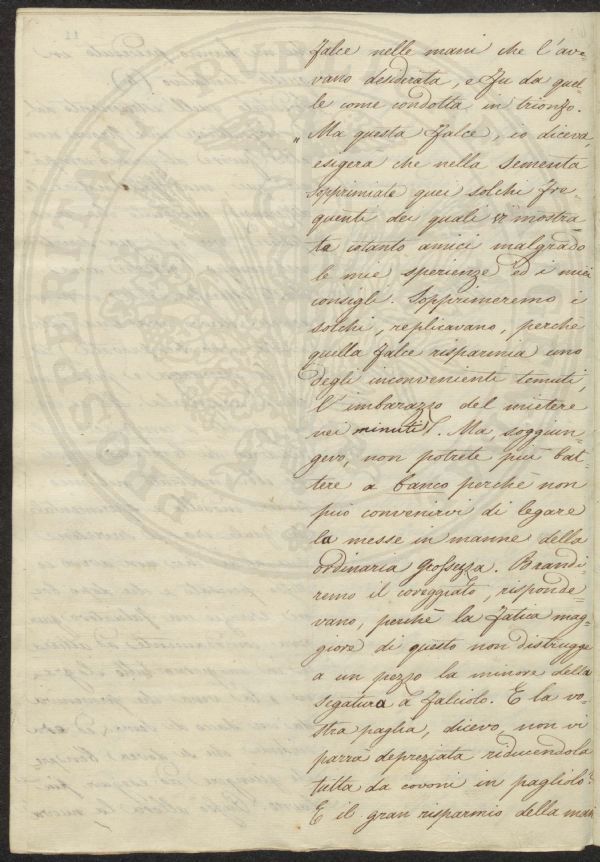 falce nelle mani che l'ave-
vano desiderata, e fu da quel-
le come condotta in trionfo.
„ Ma questa falce, io diceva,
esigerà che nella sementa
sopprimiate quei solchi fre-
quenti dei quali vi mostra-
te cotanto amici malgrado
le mie sperienze ed i miei
consigli. Sopprimeremo i
solchi, replicavano, perchè
quella falce risparmia uno
degli inconvenienti temuti,
l'imbarazzo del mietere
nei minuti. Ma, soggiun-
gevo, non potrete più bat-
tere a banco perchè non
può convenirvi di legare
la messe in manne della
ordinaria grossezza. Brandi-
remo il coreggiato, risponde-
vano, perchè la fatica mag-
giore di questo non distrugge
a un pezzo la minore della
segatura a falciolo. E la vo-
stra paglia, dicevo, non vi
parrà deprezziata riducendola
tutta da covoni in pagliolo?
E il gran risparmio della man